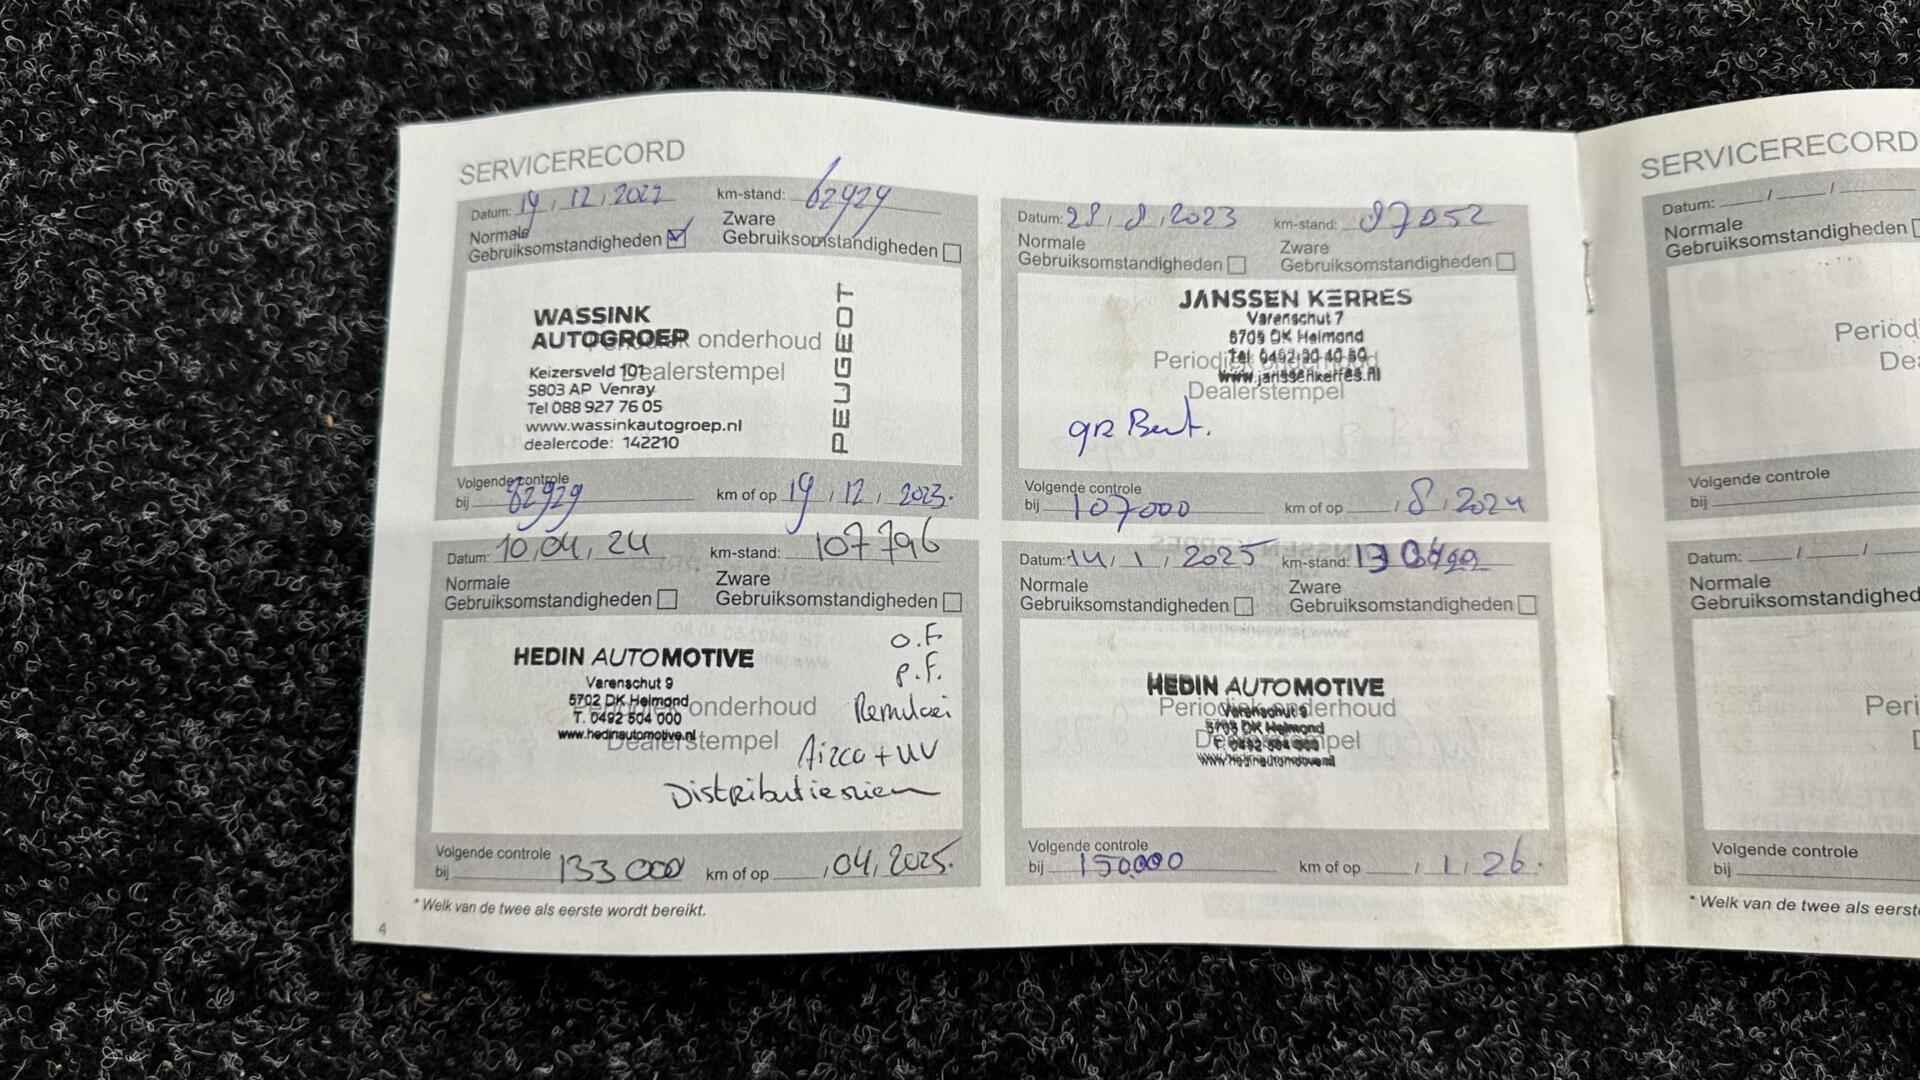 SERVICERECORD
Datum: 19, 12, 2022 km-stand: 62929
Normale Gebruiksomstandigheden
Zware Gebruiksomstandigheden
WASSINK
AUTOGROEP
PEUGEOT
Periodiek onderhoud
Dealerstempel
Keizersveld 101
5803 AP Venray
Tel 088 927 76 05
www.wassinkautogroep.nl
dealercode: 142210
Volgende controle
bij 82929 km of op 19, 12, 2023.
Datum: 28, 8, 2023 km-stand: 87052
Normale Gebruiksomstandigheden
Zware Gebruiksomstandigheden
JANSSEN KERRES
Varenschut 7
5705 DK Helmond
Tel 0492 50 40 50
www.janssenkerres.nl
Periodiek onderhoud
Dealerstempel
gr Beurt.
Volgende controle
bij 107000 km of op , 8, 2024
Datum: 10, 04, 24 km-stand: 107796
Normale Gebruiksomstandigheden
Zware Gebruiksomstandigheden
HEDIN AUTOMOTIVE
Varenschut 9
5702 DK Helmond
T. 0492 504 000
www.hedinautomotive.nl
Periodiek onderhoud
Dealerstempel
O.F.
P.F.
Remvloei
Airco + UV
Distributieriem
Volgende controle
bij 133000 km of op , 04, 2025.
Datum: 14, 1, 2025 km-stand:
Normale Gebruiksomstandigheden
Zware Gebruiksomstandigheden
HEDIN AUTOMOTIVE
Varenschut 9
5705 DK Helmond
T. 0492 504 000
www.hedinautomotive.nl
Periodiek onderhoud
Dealerstempel
Volgende controle
bij 150.000 km of op , 1, 26.
* Welk van de twee als eerste wordt bereikt.
4
SERVICERECORD
Datum: / /
Normale
Gebruiksomstandigheden
Period
Dea
Volgende controle
bij
Datum: / /
Normale
Gebruiksomstandighed
Peri
Volgende controle
bij
* Welk van de twee als eerst